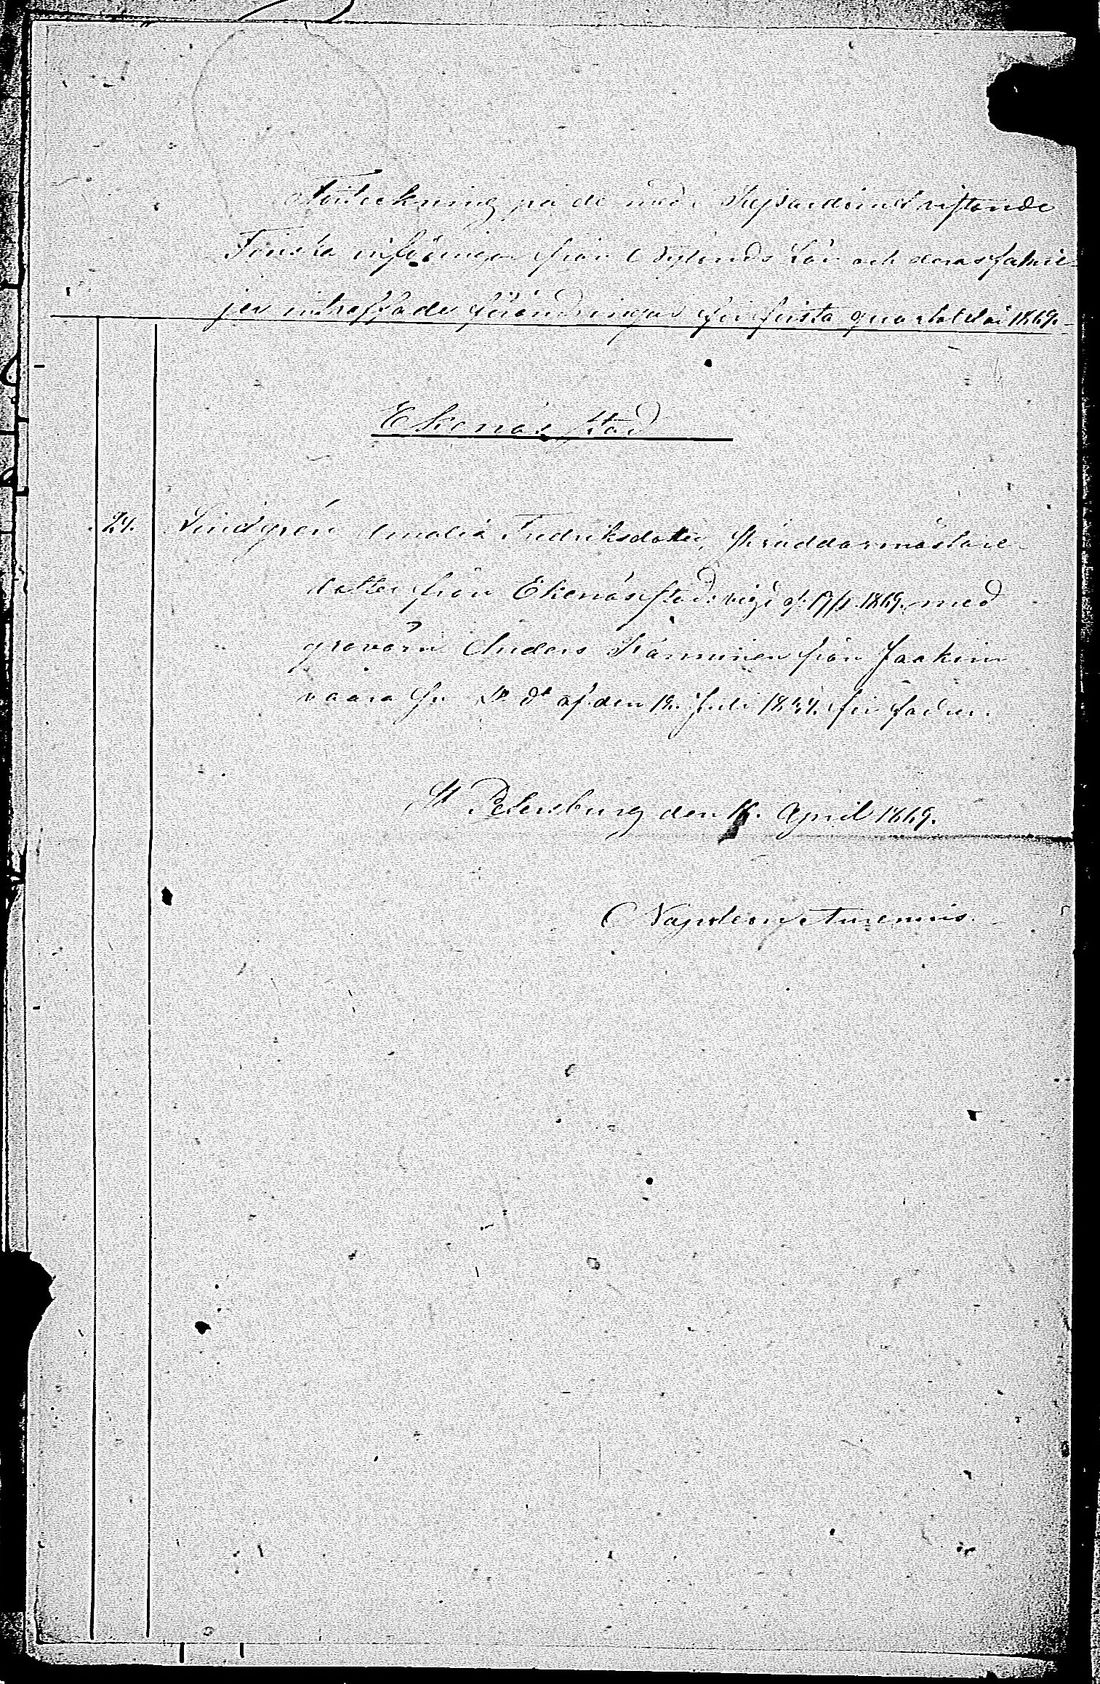 Förteckning på de med i Kejsardömet vistande
Finska infödingar från Nylands Län och deras famil-
jer inträffade förändringar för första quartalet år 1869.
Ekenäs stad
24. Lindgrén Amalia Fredriksdotter, skräddarmästare
dotter från Ekenäs stad, vigd d. 19/1 1869, med
Anders Kärminen från Jaakim
vaara af den 12 Juli 1834 för
St Petersburg den 16. April 1869.
Napoleon